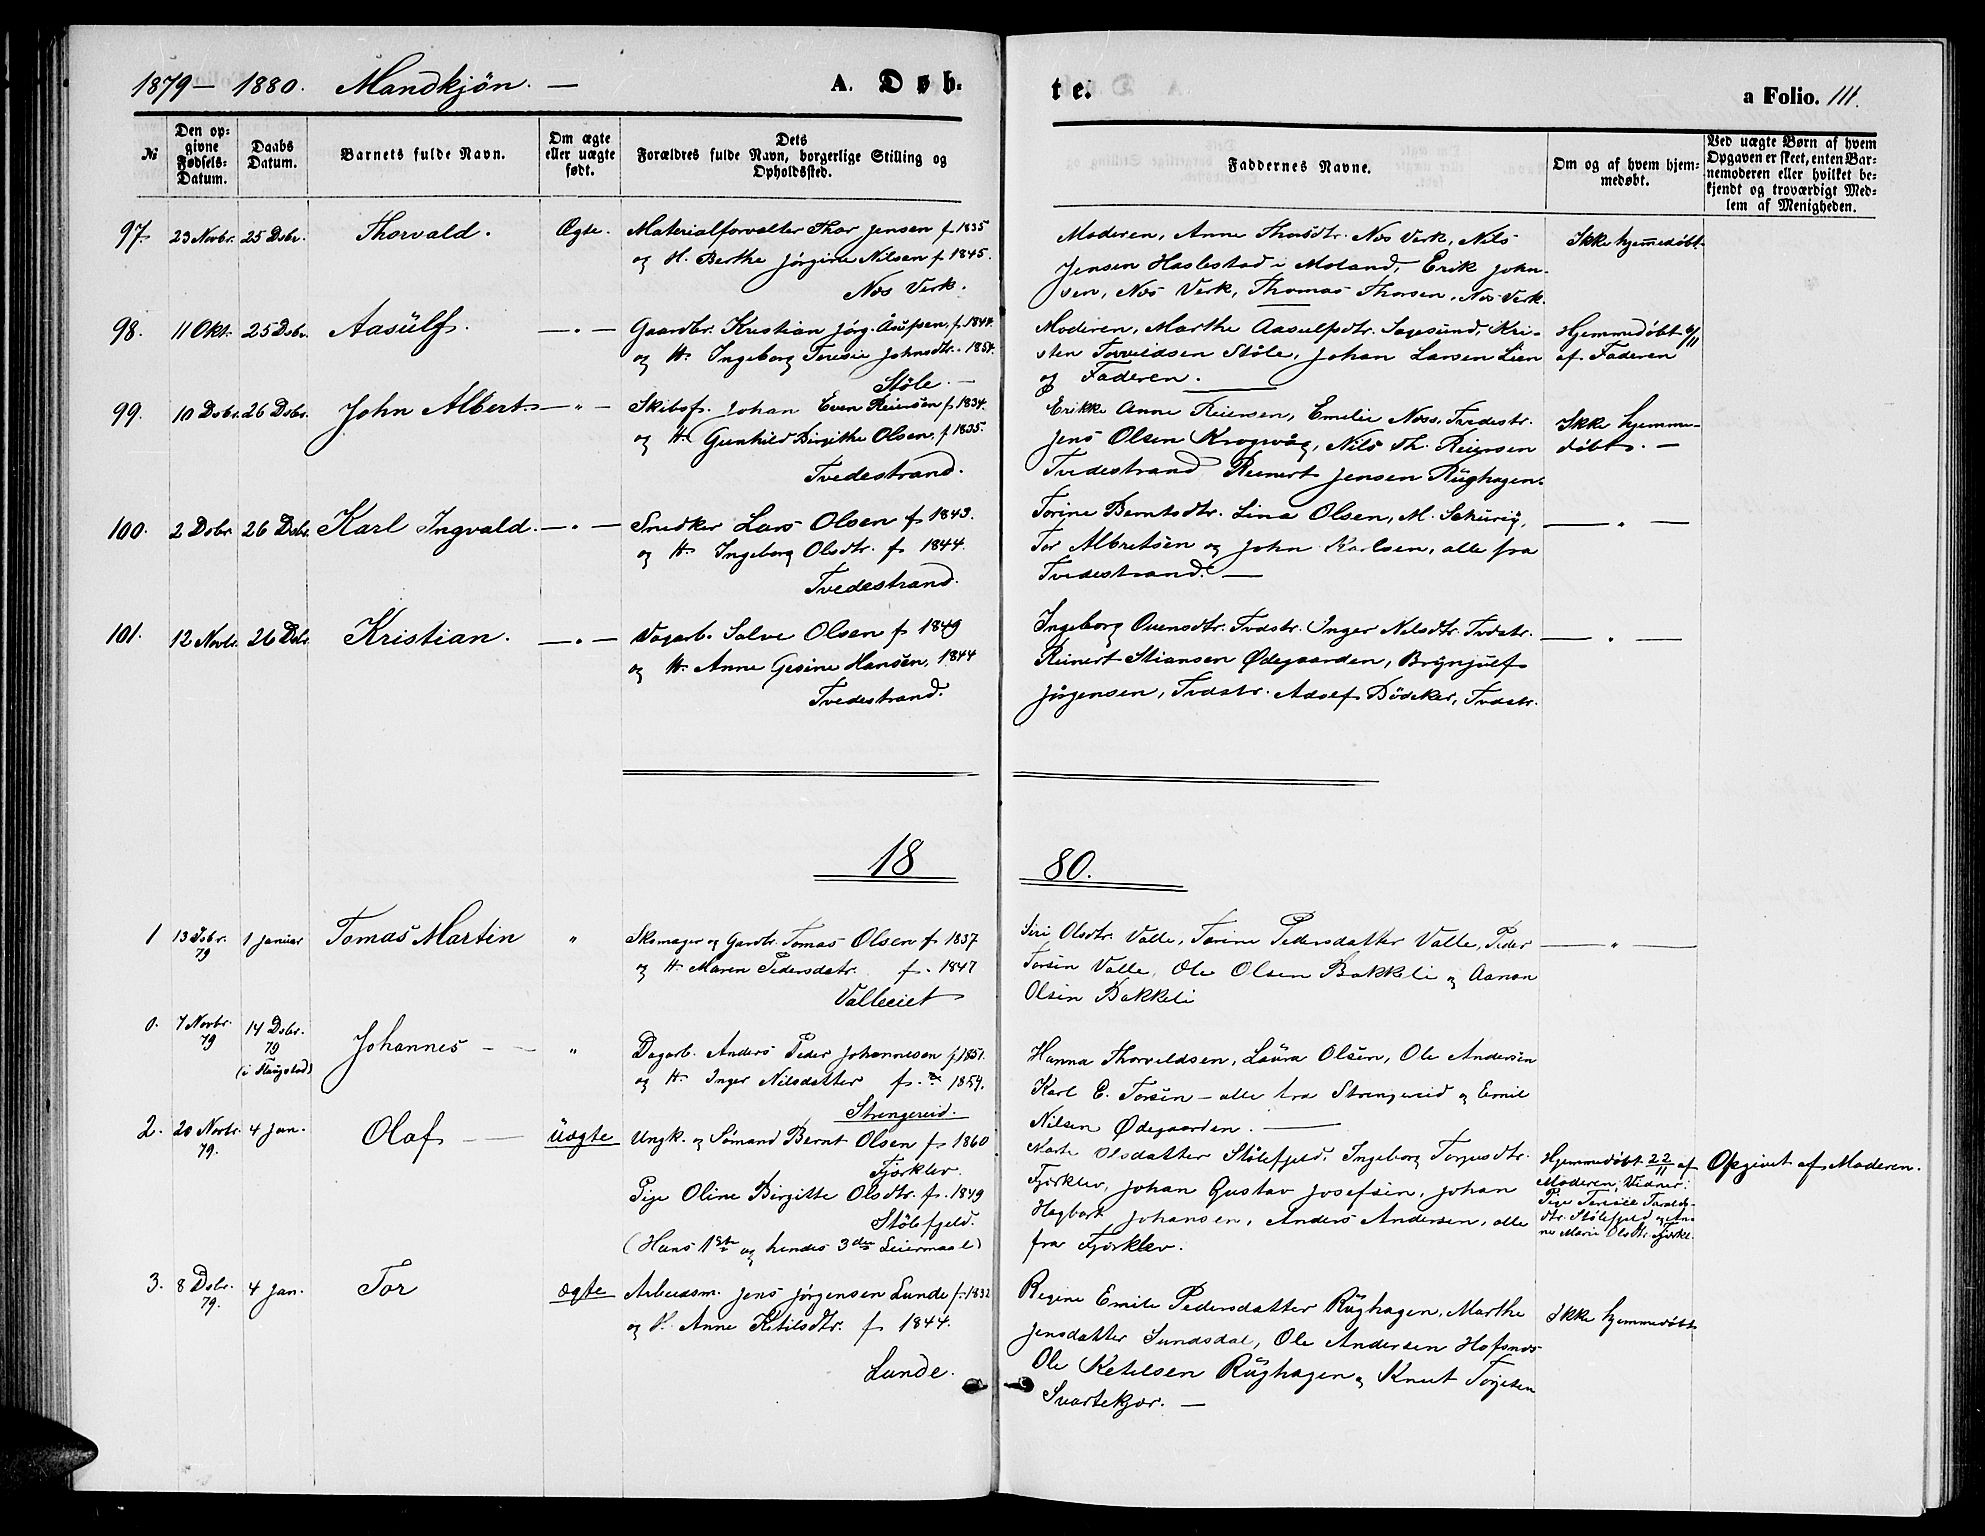 1879 – 1880. Mandkjøn. — A. Døb- te. a Folio. 111.
№ Den op- givne Fødsels- Datum. Daabs Datum. Barnets fulde Navn. Om ægte eller uægte født. Dets Forældres fulde Navn, borgerlige Stilling og Opholdssted. Faddernes Navne. Om og af hvem hjem- medøbt. Ved uægte Børn af hvem Opgaven er skeet, enten Bar- nemoderen eller hvilket be- kjendt og troværdigt Med- lem af Menigheden.
97. 23 Novbr. 25 Dsbr. Thorvald. Ægte. Materialforvalter Thor Jensen f 1835
og H. Berthe Jørgine Nilsen f. 1845.
Næs Verk.
Moderen, Anne Thorsdtr. Næs Verk, Nils
Jensen Haslestad i Moland, Erik John-
sen, Næs Verk, Thomas Thorsen, Næs Verk.
Ikke hjemmedøbt
98. 11 Okt. 25 Dsbr. Aasülf. — " — Gaardbr. Kristian Jørg. Åsulfsen, f. 1844.
og H. Ingeborg Teresie Johnsdtr. 1854.
Støle. —
Moderen, Marthe Aasulfsdtr. Sagesund, Kri-
sten Torvildsen Støle, Johan Larsen Lien
og Faderen.
Hjemmedøbt 6/11
af Faderen
99. 10 Dsbr. 26 Dsbr. John Albert. — " — Skibsf. Johan Even Reiersen f 1834.
og H. Gunhild Birgithe Olsen, f 1835.
Tvedestrand.
Erikke Anne Reiersen, Emilie Næss, Tvedestr.
Jens Olsen Krogvåg, Nils Th. Reiersen
Tvedestrand Reinert Jensen Rüghagen.
Ikke hjemme-
døbt. —
100. 2 Dsbr. 26 Dsbr. Karl Ingvald. — " — Snedker Lars Olsen f 1843.
og H. Ingeborg Olsdtr. f 1844.
Tvedestrand.
Torine Berntsdtr. Lina Olsen, M. Schürig,
Tor Albretsen og John Karlsen, alle fra
Tvedestrand. —
— " —
101. 12 Novbr. 26 Dsbr. Kristian. — " — Dagarb. Salve Olsen f 1849
og H. Anne Gesine Hansen, 1844
Tvedestrand.
Ingeborg Ovensdtr. Tvdstr. Inger Nilsdtr. Tvdstr.
Reinert Stiansen Ødegaarden, Brynjulf
Jørgensen, Tvdstr. Adolf Bödeker, Tvdstr.
— " —
18 80.
1 13 Dsbr. 79 1 Januar Tomas Martin " Skomager og Gardbr. Tomas Olsen f 1837
og H. Maren Pedersdatr. f. 1847
Valleeiet
Siri Olsdtr. Valle, Torine Pedersdatter Valle, Peder
Torsen Valle, Ole Olsen Bakkeli og Aanon
Olsen Bakkeli
— " —
0. 7 Novbr. 79 14 Dsbr. 79 (i Haugstad) Johannes — — " Dagarb. Anders Peder Johannesen f 1851.
og H. Inger Nilsdatter f. 1854.
Strengereid.
Hanna Thorveldsen, Laura Olsen, Ole Andersen
Karl E. Torsen – alle fra Strengereid og Emil
Nilsen Ødegaarden. —
2. 20 Novbr. 79. 4 Jan. Olaf — — Uægte Ungk. og Sømand Bernt Olsen f 1860
Fjorklev.
Pige Oline Birgitte Olsdtr. f. 1849
Stølefjeld.
(Hans 1ste og hendes 3die Leiermaal)
Marte Olsdatter Stølefjeld, Ingeborg Torjusdtr.
Fjorklev, Johan Gustav Josefsen, Johan
Hagbart Johansen, Anders Andersen, alle
fra Fjorklev.
Hjemmedøbt 22/11 af
Moderen, Vidner:
Pige Teresie Taralds-
dtr. Stølefjeld og An-
ne Marie Olsdtr. Fjorkl.
Opgivet af Moderen.
3. 8 Dsbr. 79. 4 Jan. Tor ægte Arbeidsm. Jens Jørgensen Lunde f. 1832
og H. Anne Ketilsdtr. f 1844.
Lunde.
Regine Emilie Pedersdatter Rüghagen, Marthe
Jensdatter Sundsdal, Ole Andersen Hofsnæs
Ole Ketelsen Rüghagen og Knut Torjesen
Svartekjær. —
Ikke hjemmedøbt